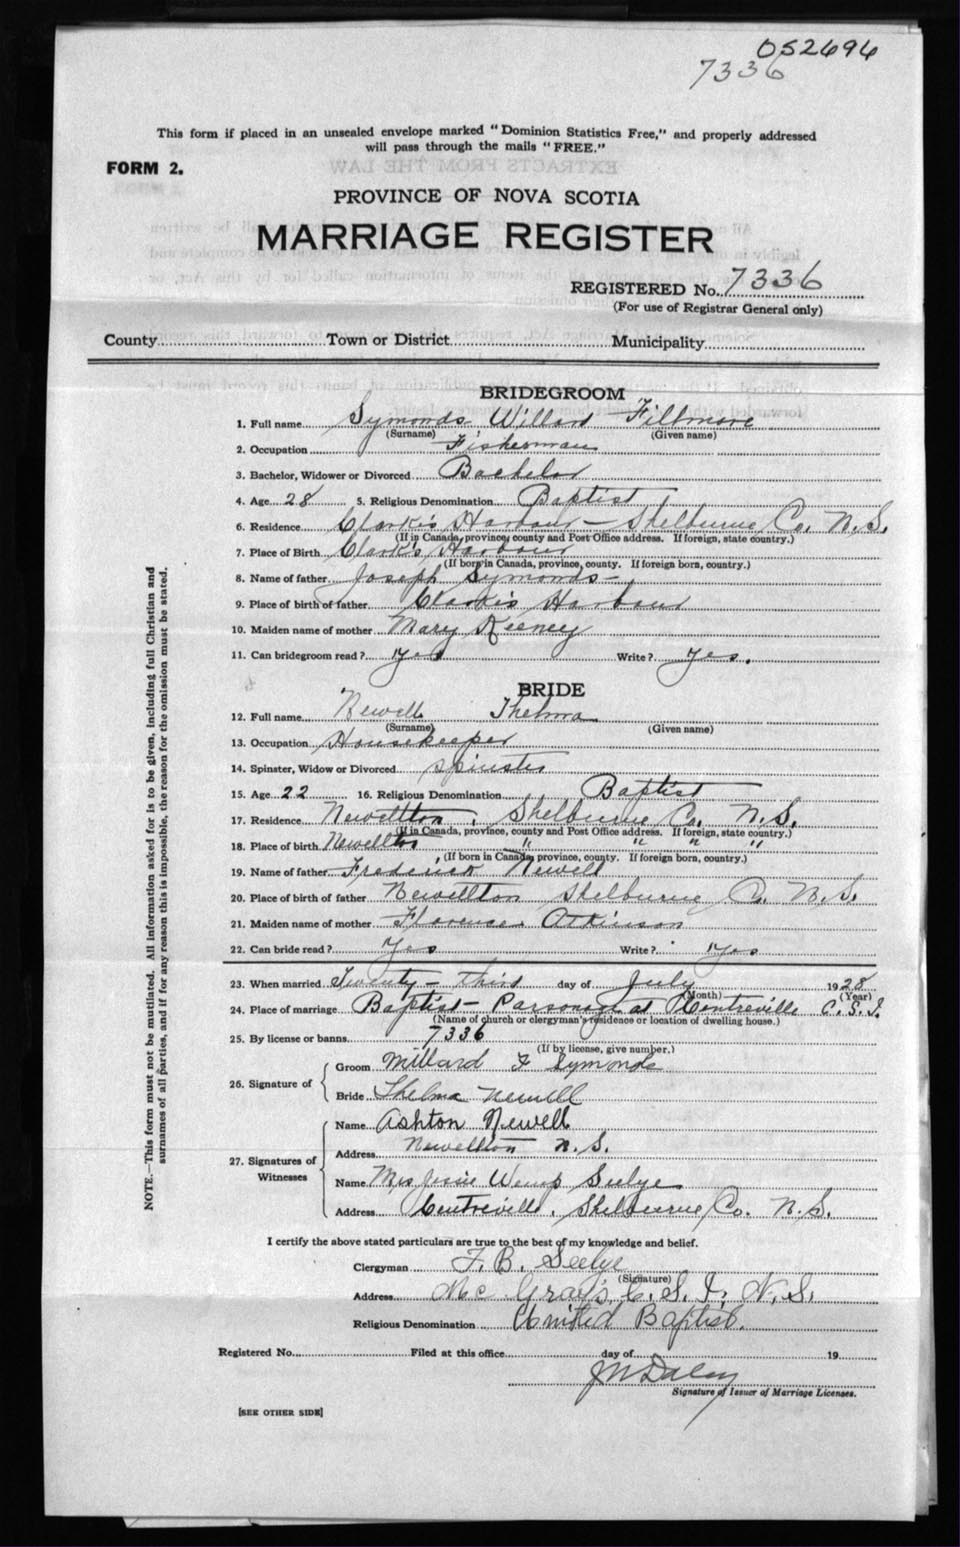 052696
7336
This form if placed in an unsealed envelope marked "Dominion Statistics Free," and properly addressed
will pass through the mails "FREE."
FORM 2.
PROVINCE OF NOVA SCOTIA
MARRIAGE REGISTER
REGISTERED No. 7336
(For use of Registrar General only)
County Town or District Municipality
BRIDEGROOM
1. Full name Symonds Willard Fillmore
(Surname) (Given name)
2. Occupation Fisherman
3. Bachelor, Widower or Divorced Bachelor
4. Age 28 5. Religious Denomination Baptist
6. Residence Clark's Harbour - Shelburne Co. N.S.
(If in Canada, province, county and Post Office address. If foreign, state country.)
7. Place of Birth Clark's Harbour
(If born in Canada, province, county. If foreign born, country.)
8. Name of father Joseph Symonds -
9. Place of birth of father Clark's Harbour
10. Maiden name of mother Mary Keeney
11. Can bridegroom read? Yes Write? Yes.
BRIDE
12. Full name Newell Thelma
(Surname) (Given name)
13. Occupation Housekeeper
14. Spinster, Widow or Divorced Spinster
15. Age 22 16. Religious Denomination Baptist
17. Residence Newellton, Shelburne Co. N.S.
(If in Canada, province, county and Post Office address. If foreign, state country.)
18. Place of birth Newellton " " " "
(If born in Canada, province, county. If foreign born, country.)
19. Name of father Frederick Newell
20. Place of birth of father Newellton Shelburne Co. N.S.
21. Maiden name of mother Florence Atkinson
22. Can bride read? Yes Write? Yes
23. When married Twenty-third day of July 1928
(Month) (Year)
24. Place of marriage Baptist Parsonage at Centreville C.S.I.
(Name of church or clergyman's residence or location of dwelling house.)
25. By license or banns 7336
(If by license, give number.)
26. Signature of
Groom Millard F Symonds
Bride Thelma Newell
27. Signatures of Witnesses
Name Ashton Newell
Address Newellton N.S.
Name Mrs Jessie Wemp Seelye
Address Centreville, Shelburne Co. N.S.
I certify the above stated particulars are true to the best of my knowledge and belief.
Clergyman F. B. Seelye
(Signature)
Address McGray's C.S.I. N.S.
Religious Denomination United Baptist.
Registered No. Filed at this office day of 19
Signature of Issuer of Marriage Licenses.
[SEE OTHER SIDE]
NOTE.—This form must not be mutilated. All information asked for is to be given, including full Christian and
surnames of all parties, and if for any reason this is impossible, the reason for the omission must be stated.